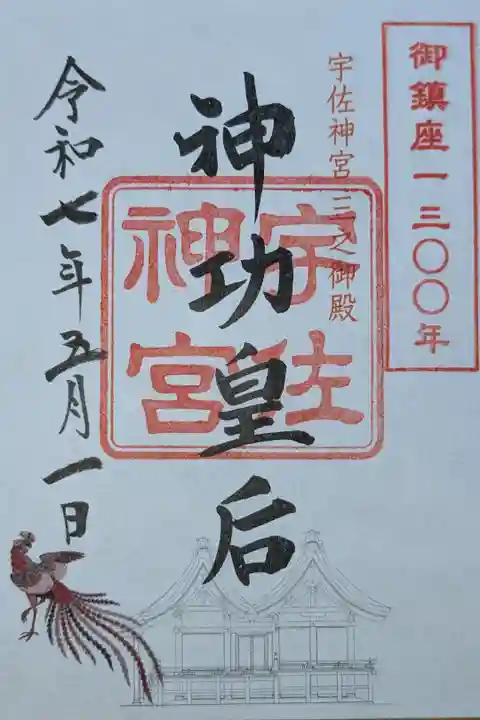 御鎮座一三〇〇年
宇佐神宮 三之御殿
神功皇后
宇佐
神宮
令和七年五月一日